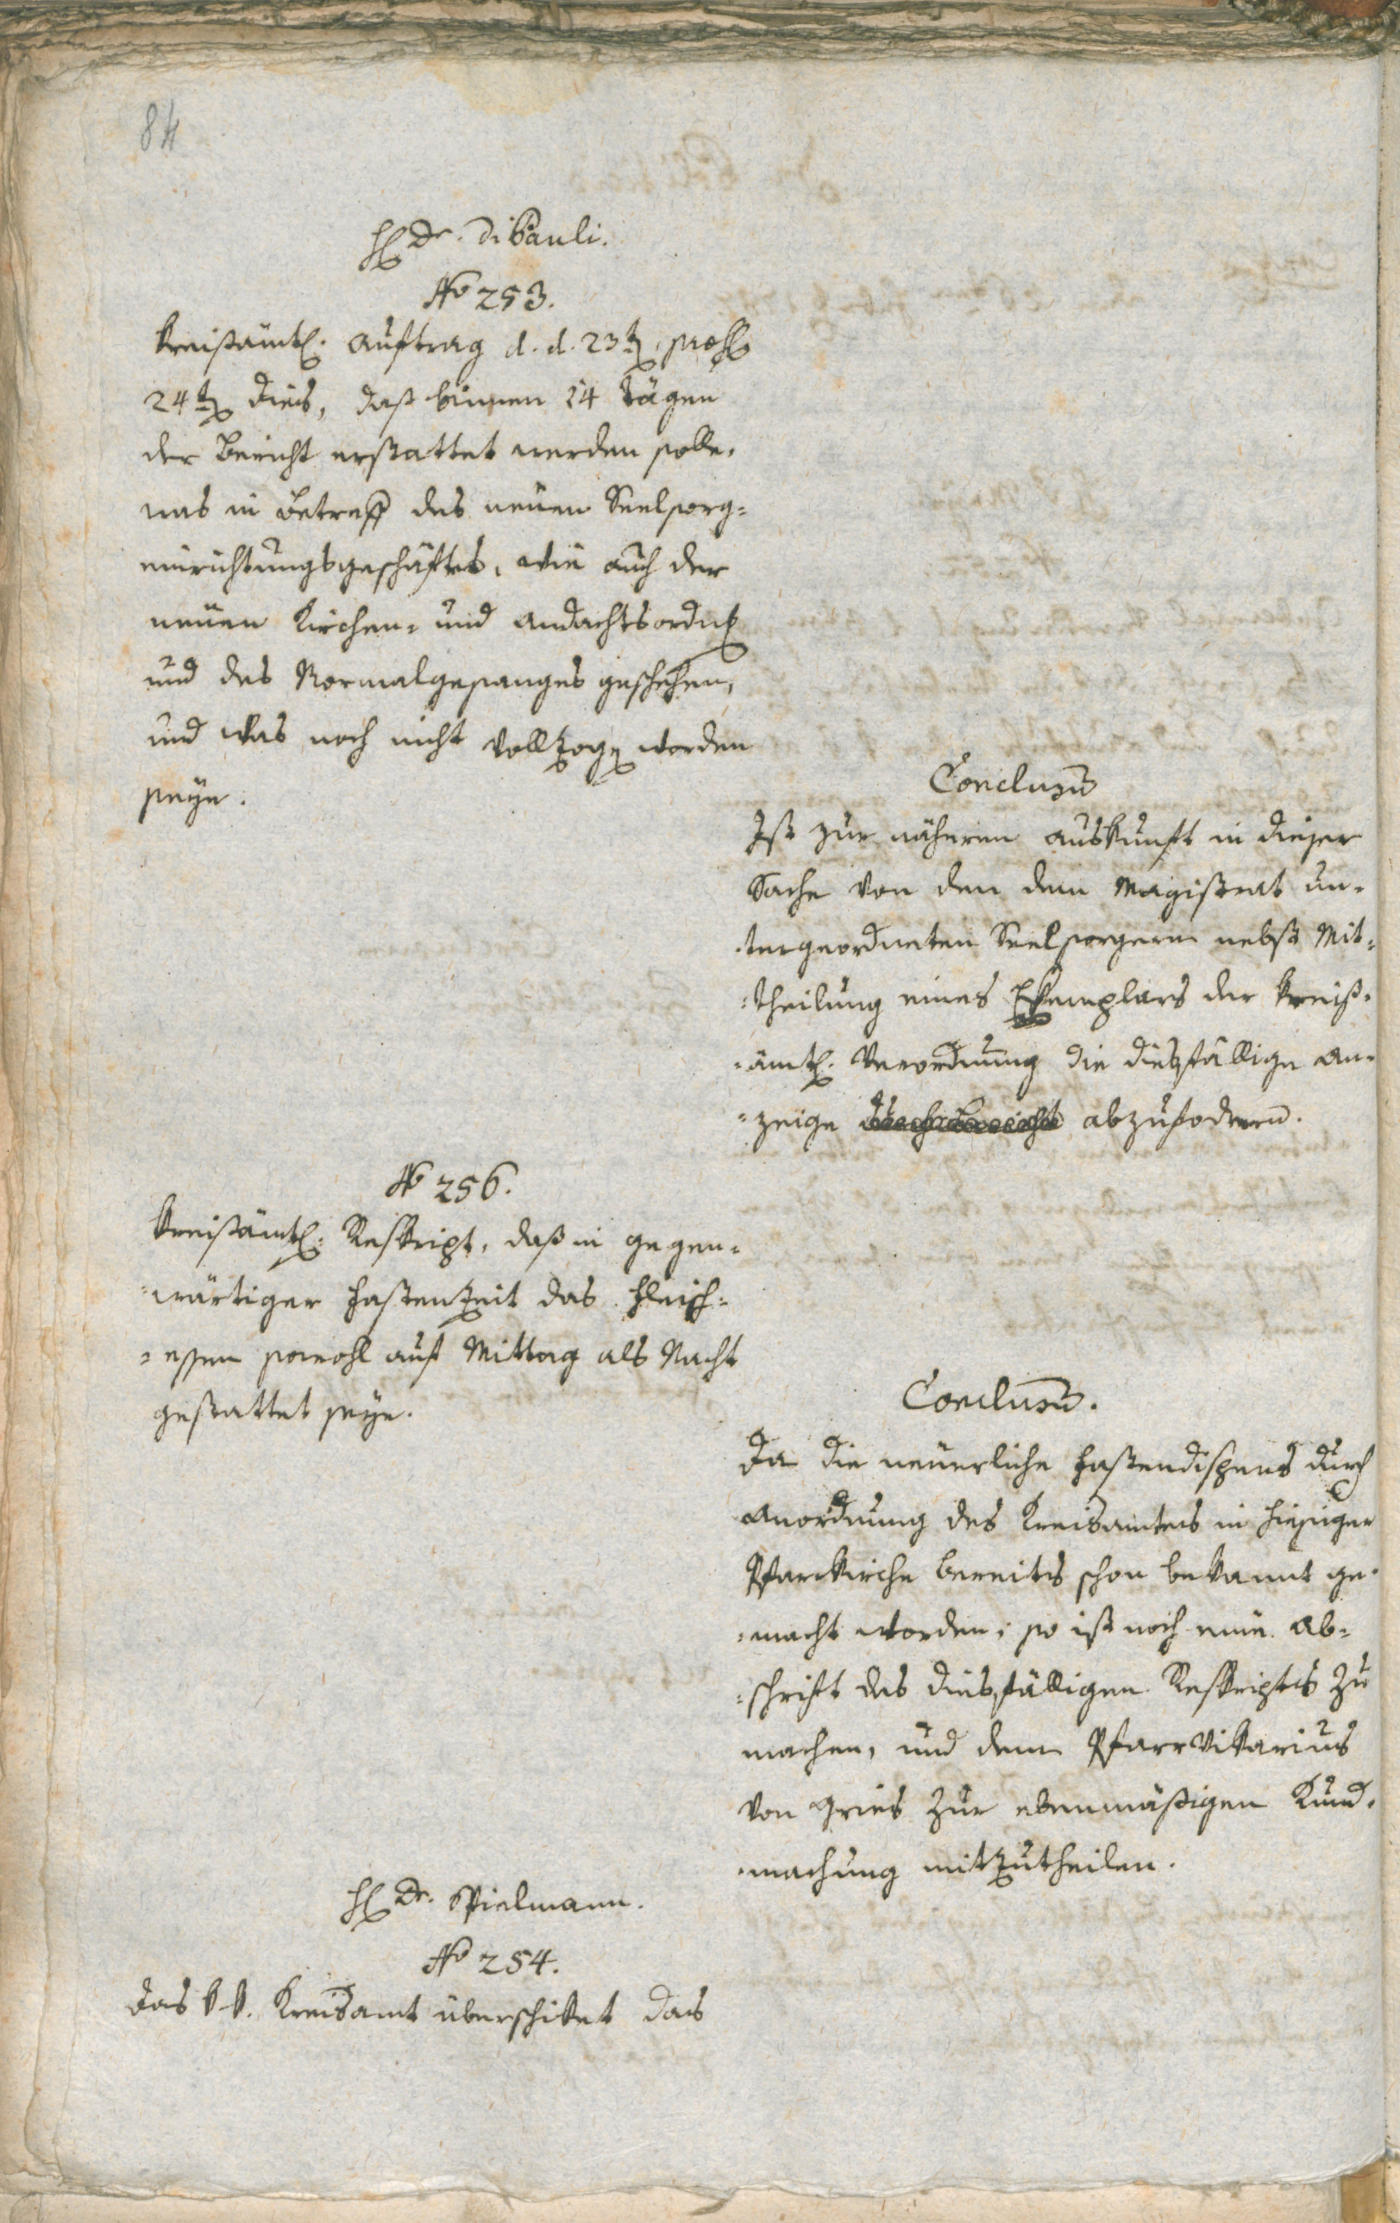 84
H Dr. di Pauli.
No 253.
Kreisämtl. Auftrag d. d. 23t. praes.
24t. dies, daß binnen 14 Tägen
der Bericht erstattet werden solle,
was in Betreff des neuen Seelsorg=
einrichtungsgeschäftes, wie auch der
neuen Kirchen= und Andachtsordng
und des Normalgesanges geschehen,
und was noch nicht vollzogen worden
seye.
Conclusum
Ist zur näheren Auskunft in dieser
Sache von den dem Magistrat un=
=tergeordneten Seelsorgern nebst Mit=
=theilung eines Exemplars der kreiß=
=ämtl. Verordnung die diesfällige An=
=zeige abzufodern.
No 256.
Kreisämtl. Reskript, daß in gegen=
=wärtiger Fastenzeit das Fleisch=
=essen sowohl auf Mittag als Nacht
gestattet seye.
Conclusum.
Da die neuerliche Fastendispens durch
Anordnung des Kreisamtes in hiesiger
Pfarrkirche bereits schon bekannt ge=
=macht worden, so ist noch eine Ab=
=schrift des diesfälligen Reskriptes zu
machen, und dem Pfarrvikarius
von Gries zur ebenmäßigen Kund=
=machung mitzutheilen.
H Dr. Spielmann.
No 254.
Das k. k. Kreisamt überschiket das